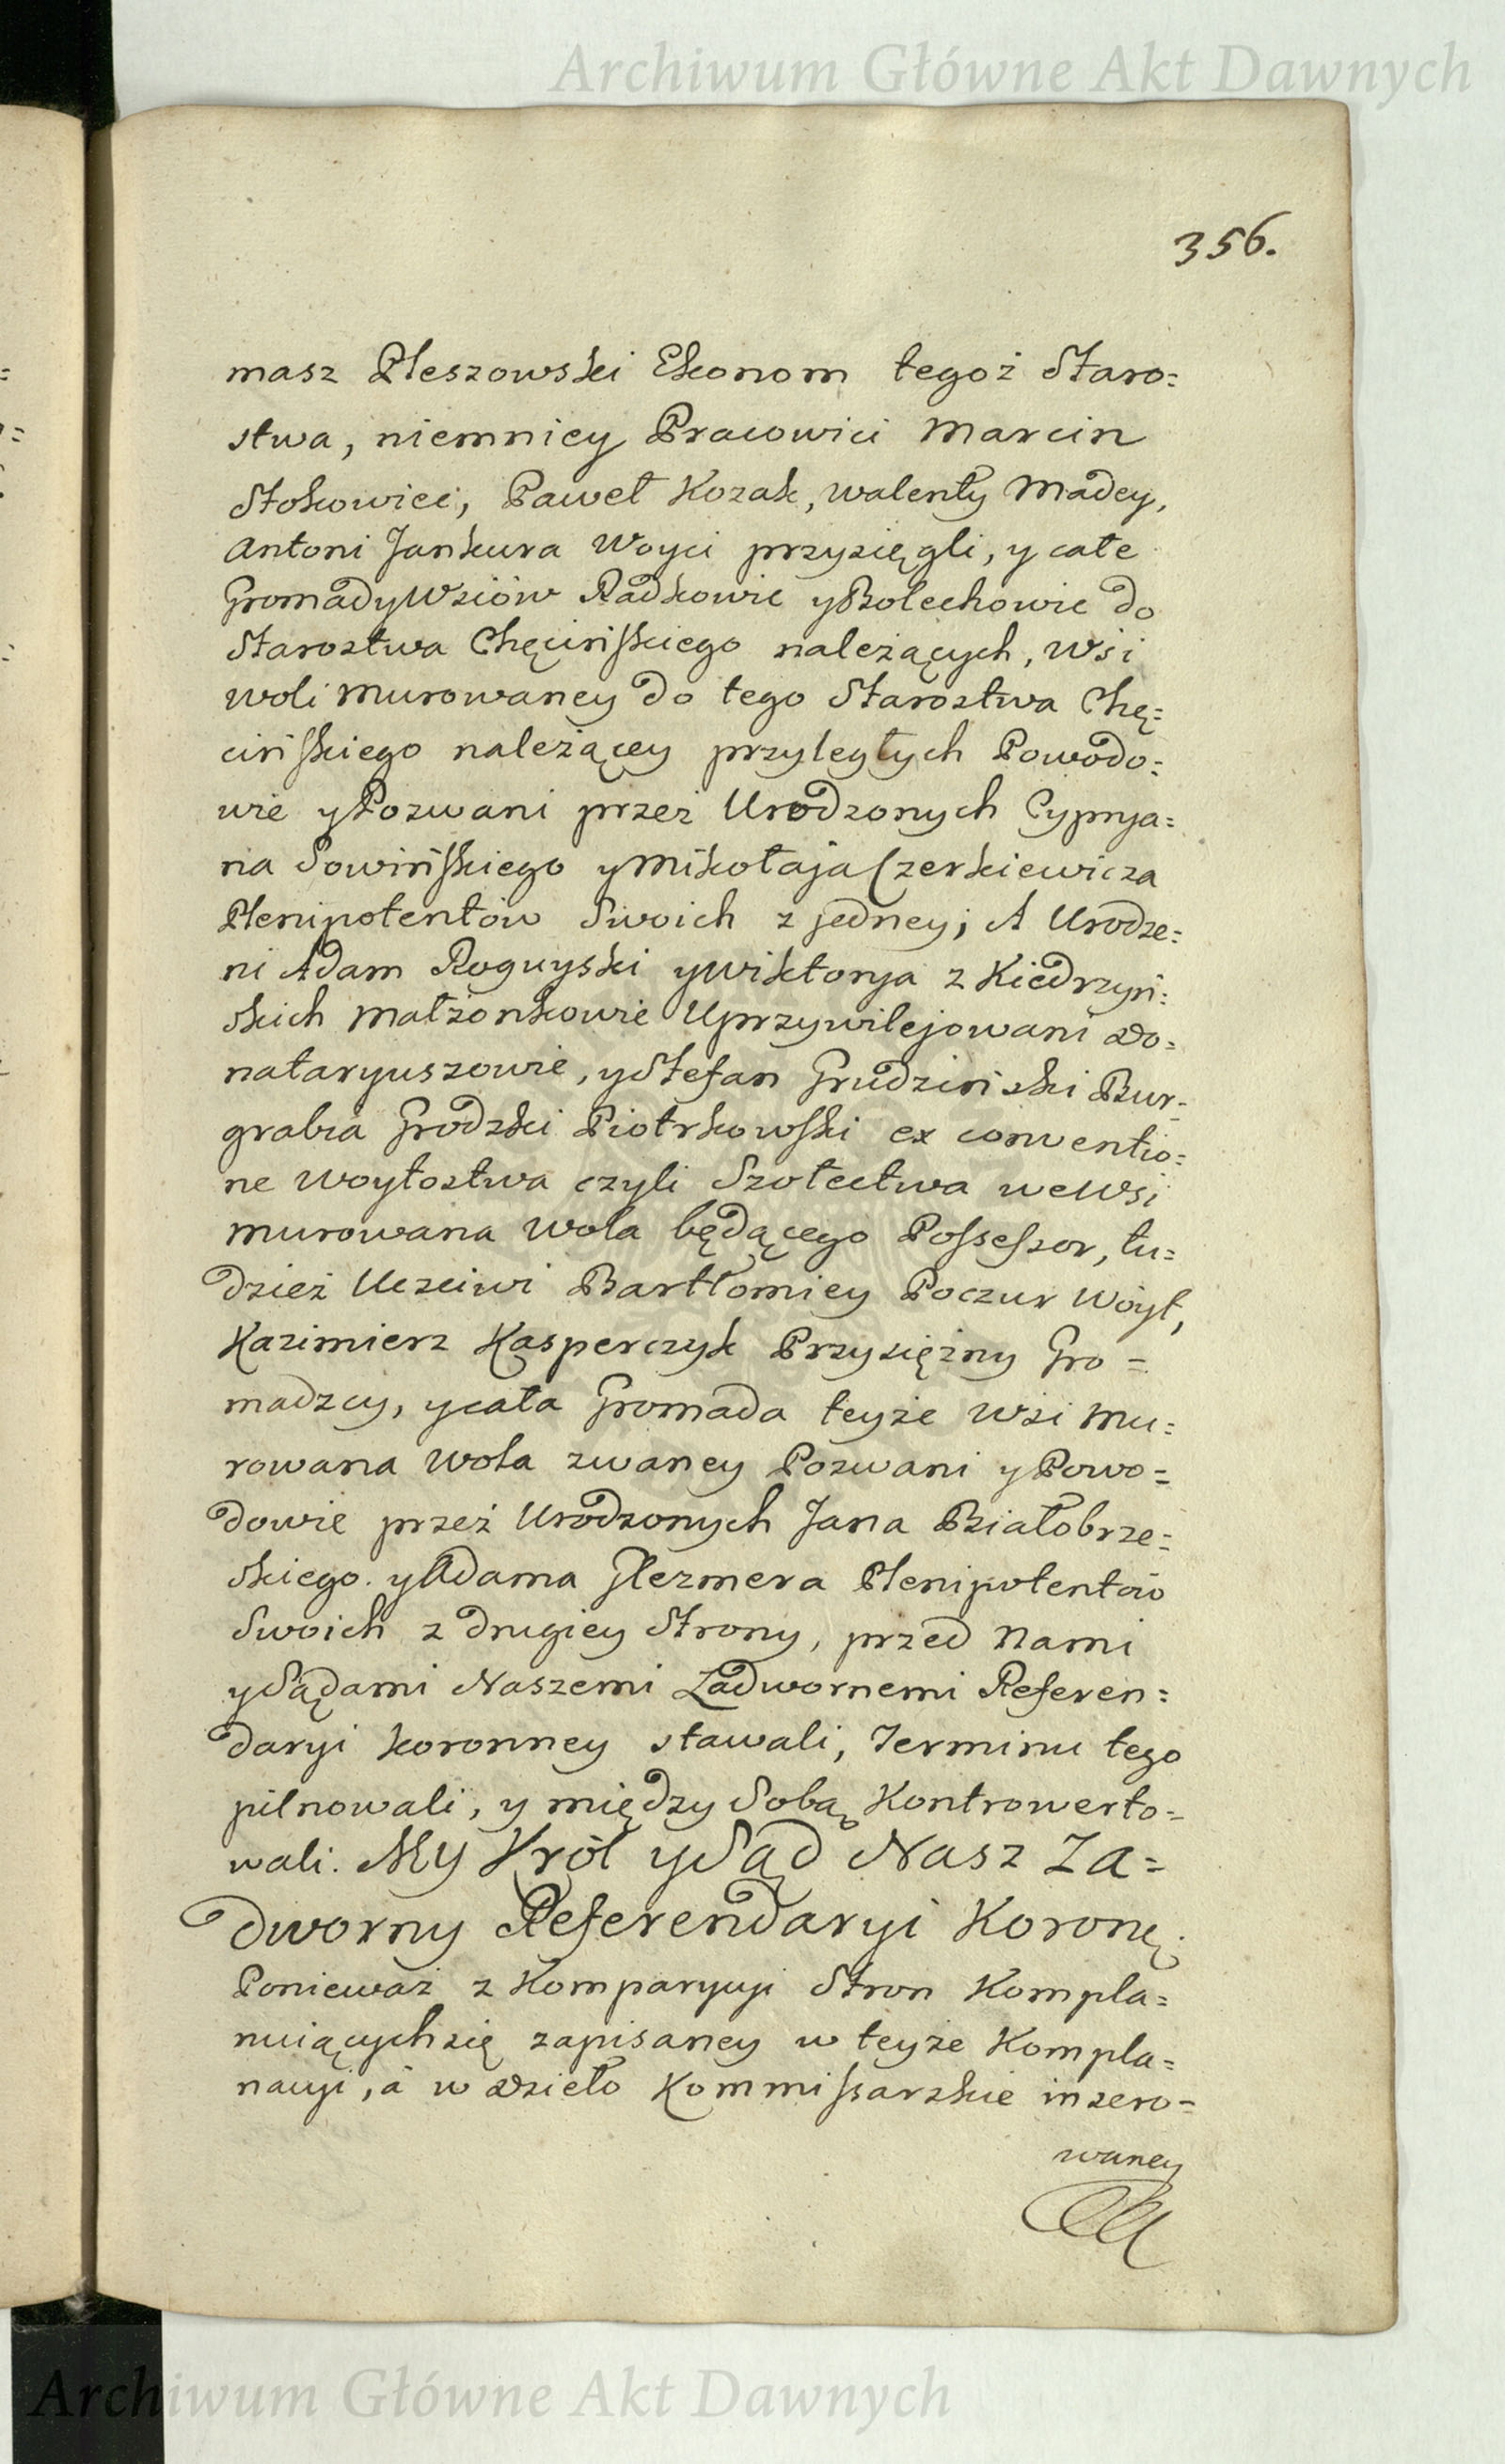 Archiwum Główne Akt Dawnych
356.
masz Pleszowski Ekonom tegoż Staro=
stwa, niemniey Pracowici Marcin
Stokowiec, Paweł Kozak, Walenty Madey,
Antoni Jankura Woyci przysięgli, y całe
Gromady Wsiów Radkowic y Bolechowic do
Starostwa Chęcińskiego należących, Wsi
Woli Murowaney do tego Starostwa Chę=
cińskiego należącey przyległych Powodo=
wie y Pozwani przez Urodzonych Cyprya=
na Sowińskiego y Mikołaja Czerkiewicza
Plenipotentów Swoich z jedney; A Urodze=
ni Adam Roguyski y Wiktorya z Kiedrzyń=
skich Małżonkowie Uprzywilejowani Do=
nataryuszowie, y Stefan Grudziński Bur=
grabia Grodzki Piotrkowski ex conventio=
ne Woytostwa czyli Szołectwa we Wsi
Murowana Wola będącego Possessor, tu=
dzież Uczciwi Bartłomiey Poczur Woyt,
Kazimierz Kasperczyk Przysiężny Gro=
madzcy, y cała Gromada teyże Wsi Mu=
rowana Wola zwaney Pozwani y Powo=
dowie przez Urodzonych Jana Białobrze=
skiego. y Adama Glezmera Plenipotentów
Swoich z drugiey Strony, przed Nami
y Sądami Naszemi Zadwornemi Referen=
daryi Koronney stawali, Terminu tego
pilnowali, y między Sobą Kontrowerto=
wali. My Król y Sąd Nasz Za=
dworny Referendaryi Koronẹ.
Ponieważ z Komparycyi Stron Kompla=
nuiących się zapisaney w teyże Kompla=
nacyi, á w Dzieło Kommissarskie insero=
waney
Archiwum Główne Akt Dawnych